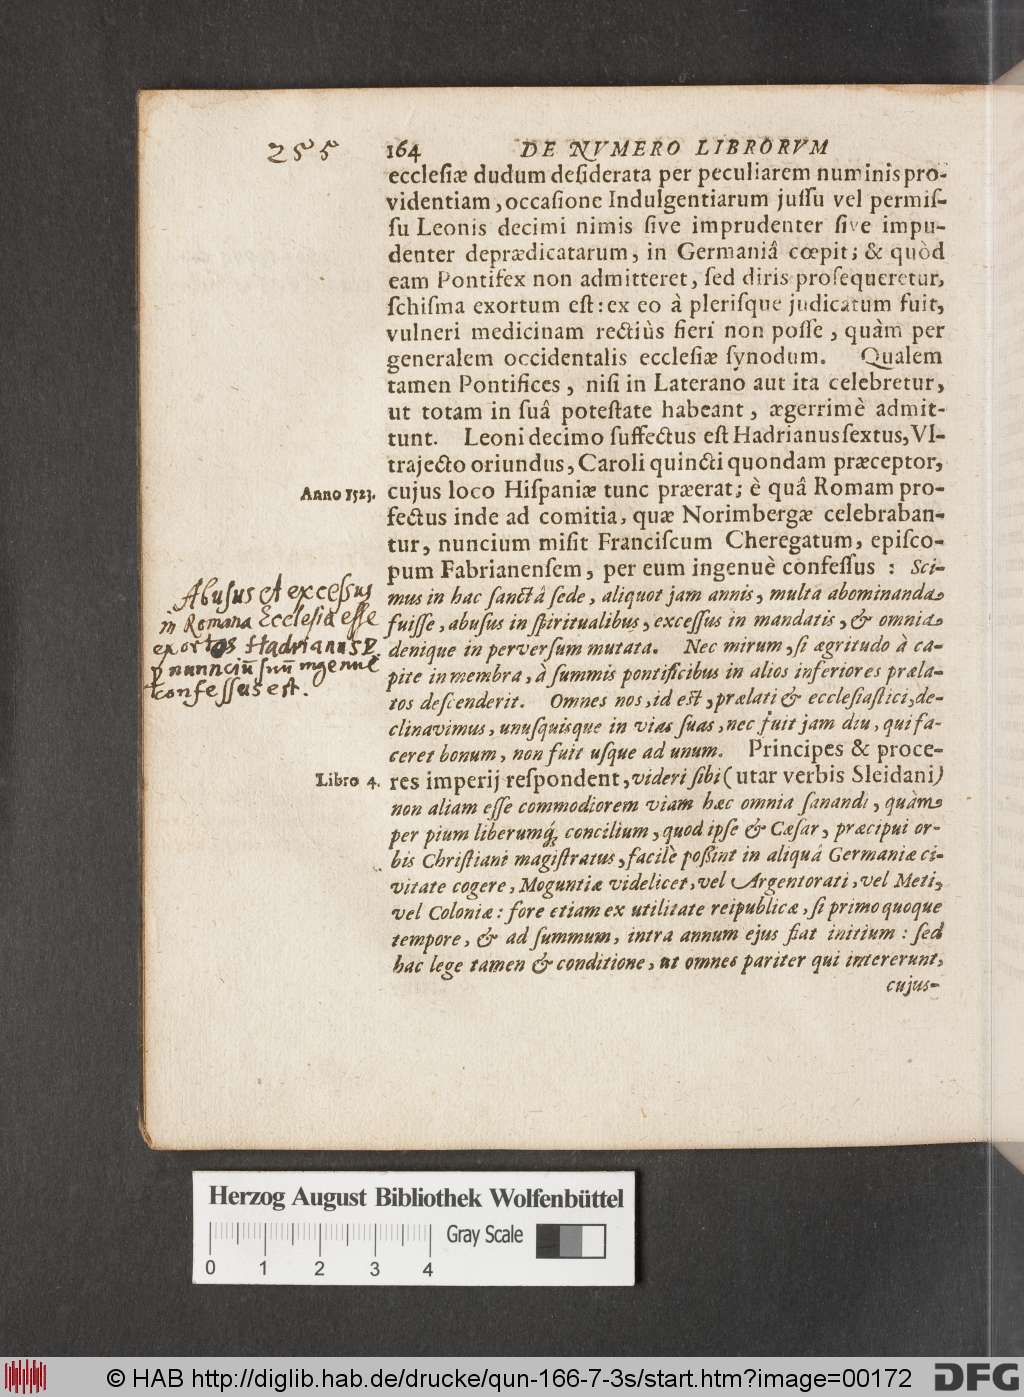 255
164 DE NVMERO LIBRORVM
ecclesiæ dudum desiderata per peculiarem numinis pro-
videntiam, occasione Indulgentiarum jussu vel permis-
su Leonis decimi nimis sive imprudenter sive impu-
denter deprædicatarum, in Germaniâ cœpit; & quòd
eam Pontifex non admitteret, sed diris prosequeretur,
schisma exortum est: ex eo à plerisque judicatum fuit,
vulneri medicinam rectiùs fieri non posse, quàm per
generalem occidentalis ecclesiæ synodum. Qualem
tamen Pontifices, nisi in Laterano aut ita celebretur,
ut totam in suâ potestate habeant, ægerrimè admit-
tunt. Leoni decimo suffectus est Hadrianus sextus, Vl-
trajecto oriundus, Caroli quincti quondam præceptor,
Anno 1523. cujus loco Hispaniæ tunc præerat; è quâ Romam pro-
fectus inde ad comitia, quæ Norimbergæ celebraban-
tur, nuncium misit Franciscum Cheregatum, episco-
pum Fabrianensem, per eum ingenuè confessus: Sci-
mus in hac sanctâ sede, aliquot jam annis, multa abominanda
fuisse, abusus in spiritualibus, excessus in mandatis, & omnia
denique in perversum mutata. Nec mirum, si ægritudo à ca-
pite in membra, à summis pontificibus in alios inferiores præla-
tos descenderit. Omnes nos, id est, prælati & ecclesiastici, de-
clinavimus, unusquisque in vias suas, nec fuit jam diu, qui fa-
ceret bonum, non fuit usque ad unum. Principes & proce-
Libro 4. res imperij respondent, videri sibi (utar verbis Sleidani)
non aliam esse commodiorem viam hæc omnia sanandi, quàm
per pium liberumq́; concilium, quod ipse & Cæsar, præcipui or-
bis Christiani magistratus, facilè possint in aliquâ Germaniæ ci-
vitate cogere, Moguntiæ videlicet, vel Argentorati, vel Meti,
vel Coloniæ: fore etiam ex utilitate reipublicæ, si primo quoque
tempore, & ad summum, intra annum ejus fiat initium: sed
hac lege tamen & conditione, ut omnes pariter qui intererunt,
cujus-
Abusus et excessus
in Romana Ecclesia esse
exortos Hadrianus
p nunnciū suū ingenue
confessus est.
Herzog August Bibliothek Wolfenbüttel
Gray Scale
0 1 2 3 4
© HAB http://diglib.hab.de/drucke/qun-166-7-3s/start.htm?image=00172
DFG